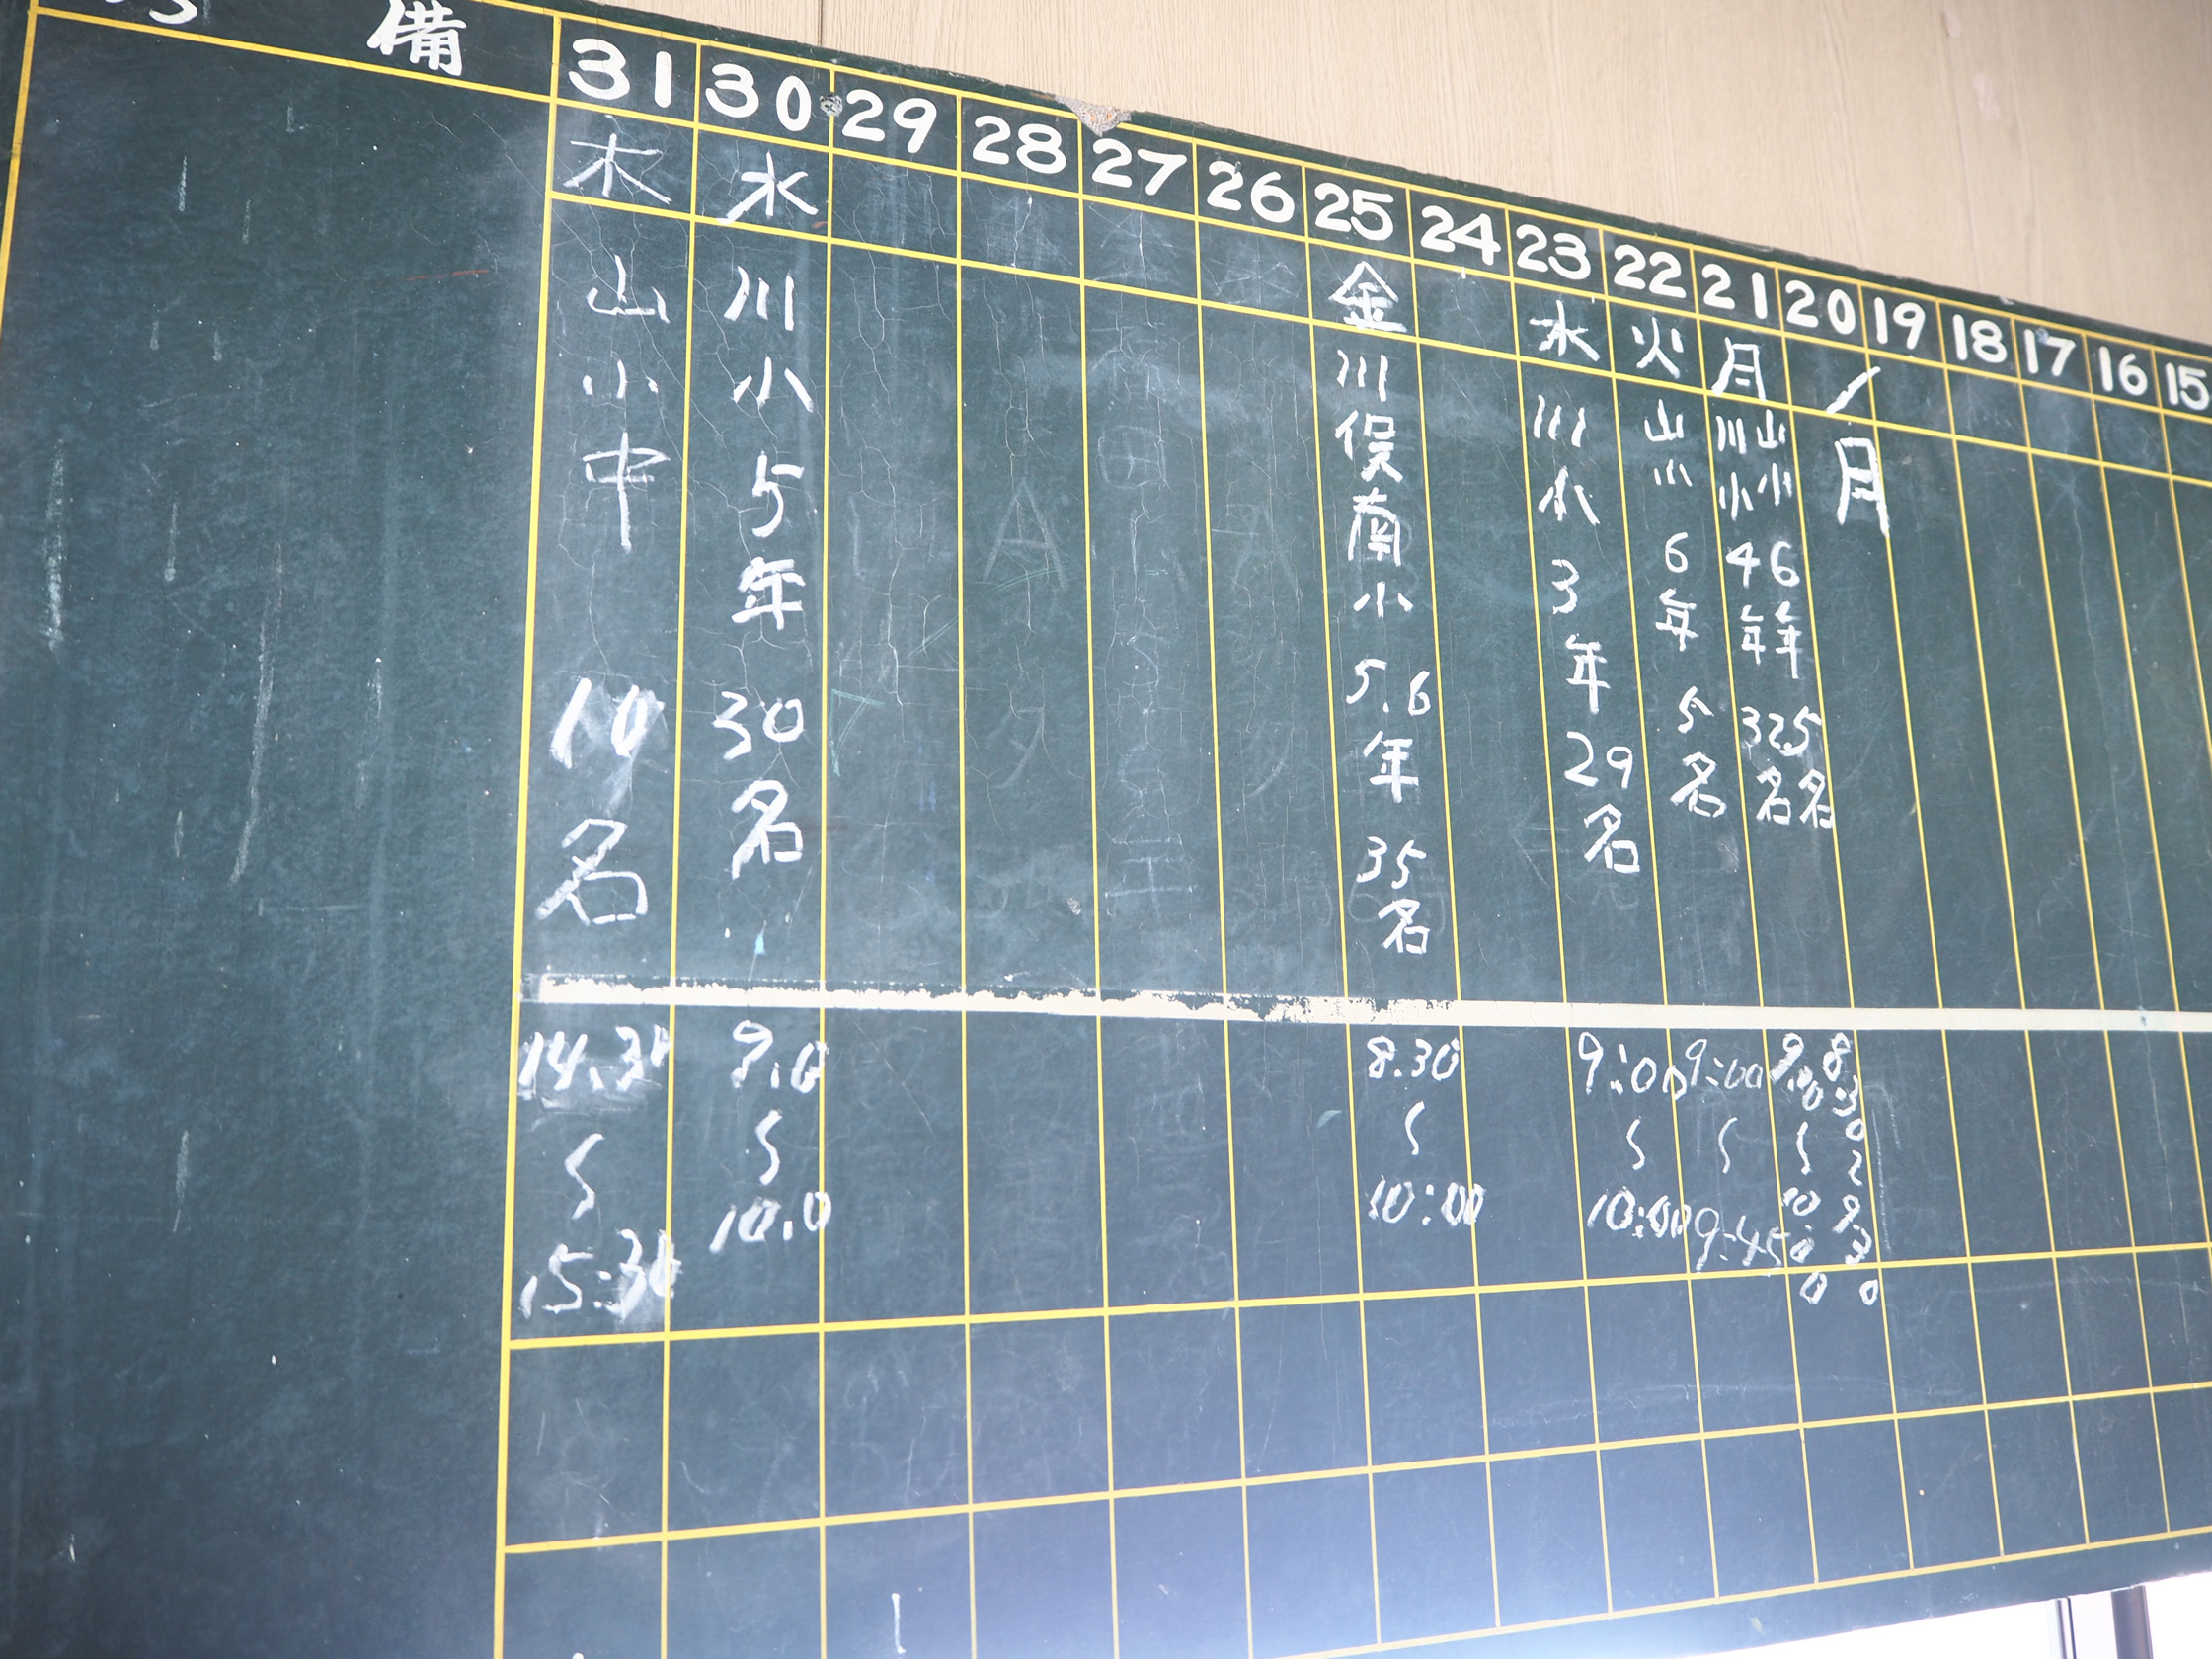 備
31
30
29
28
27
26
25
24
23
22
21
20
19
18
17
16
15
木
水
金
水
火
月
／月
山小中 10名
川小 5年 30名
川俣南小 5.6年 35名
川小 3年 29名
山小 6年 5名
山小 6年 5名
川小 4年 32名
14.30
〜
15:30
9.0
〜
10.0
8.30
〜
10:00
9:00
〜
10:00
9:00
〜
9:45
8:30
〜
9:30
9:00
〜
10:00